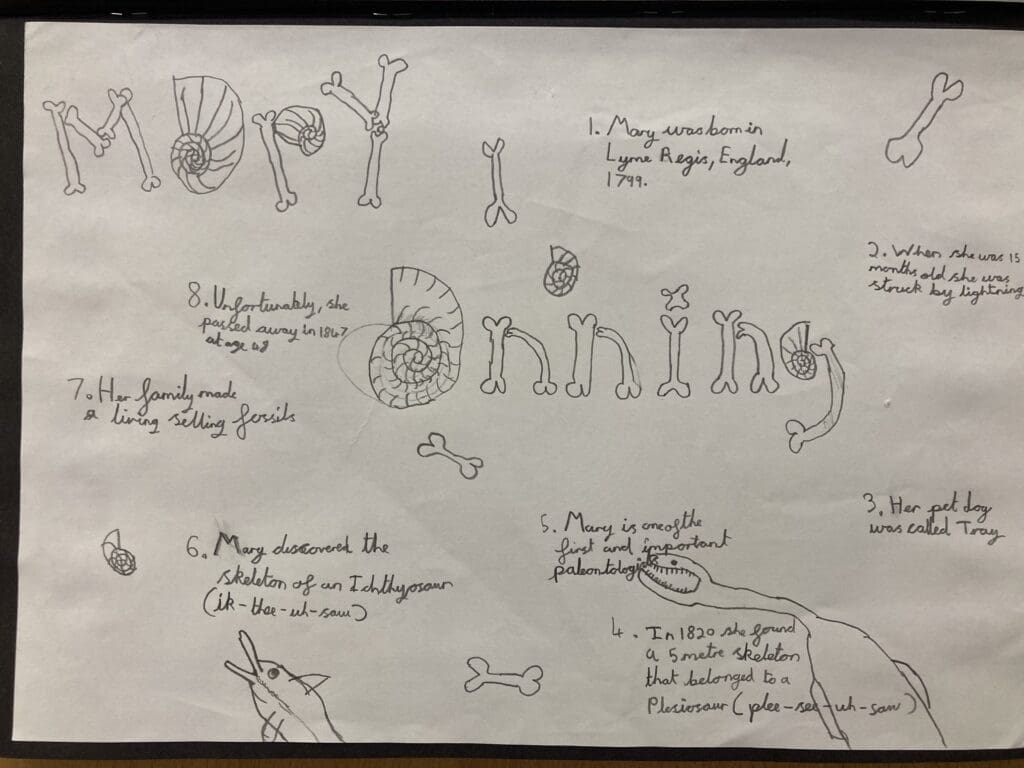 Mary
Anning
1. Mary was born in
Lyme Regis, England,
1799.
2. When she was 15
months old she was
struck by lightning
3. Her pet dog
was called Tray
4. In 1820 she found
a 5 metre skeleton
that belonged to a
Plesiosaur (plee-see-uh-saw)
5. Mary is one of the
first and important
paleontologi
6. Mary discovered the
skeleton of an Ichthyosaur
(ik-thee-uh-saw)
7. Her family made
a living selling fossils
8. Unfortunately, she
passed away in 1847
at age 48